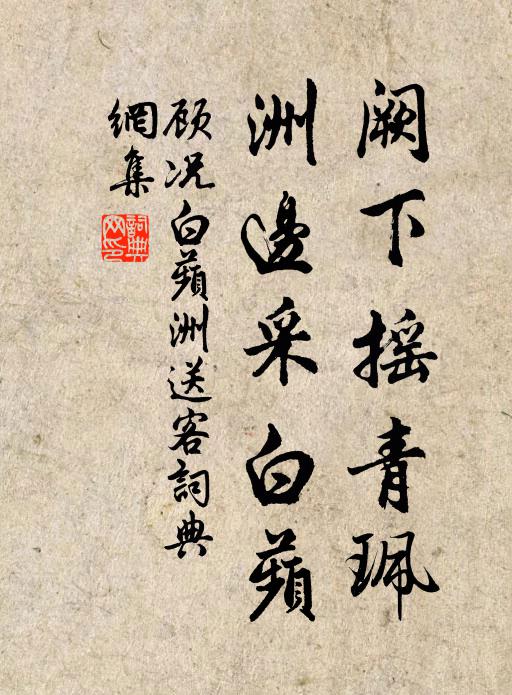 阙下摇青珮
洲邊采白蘋
顾况白蘋洲送客詞典
網集
詞典网印